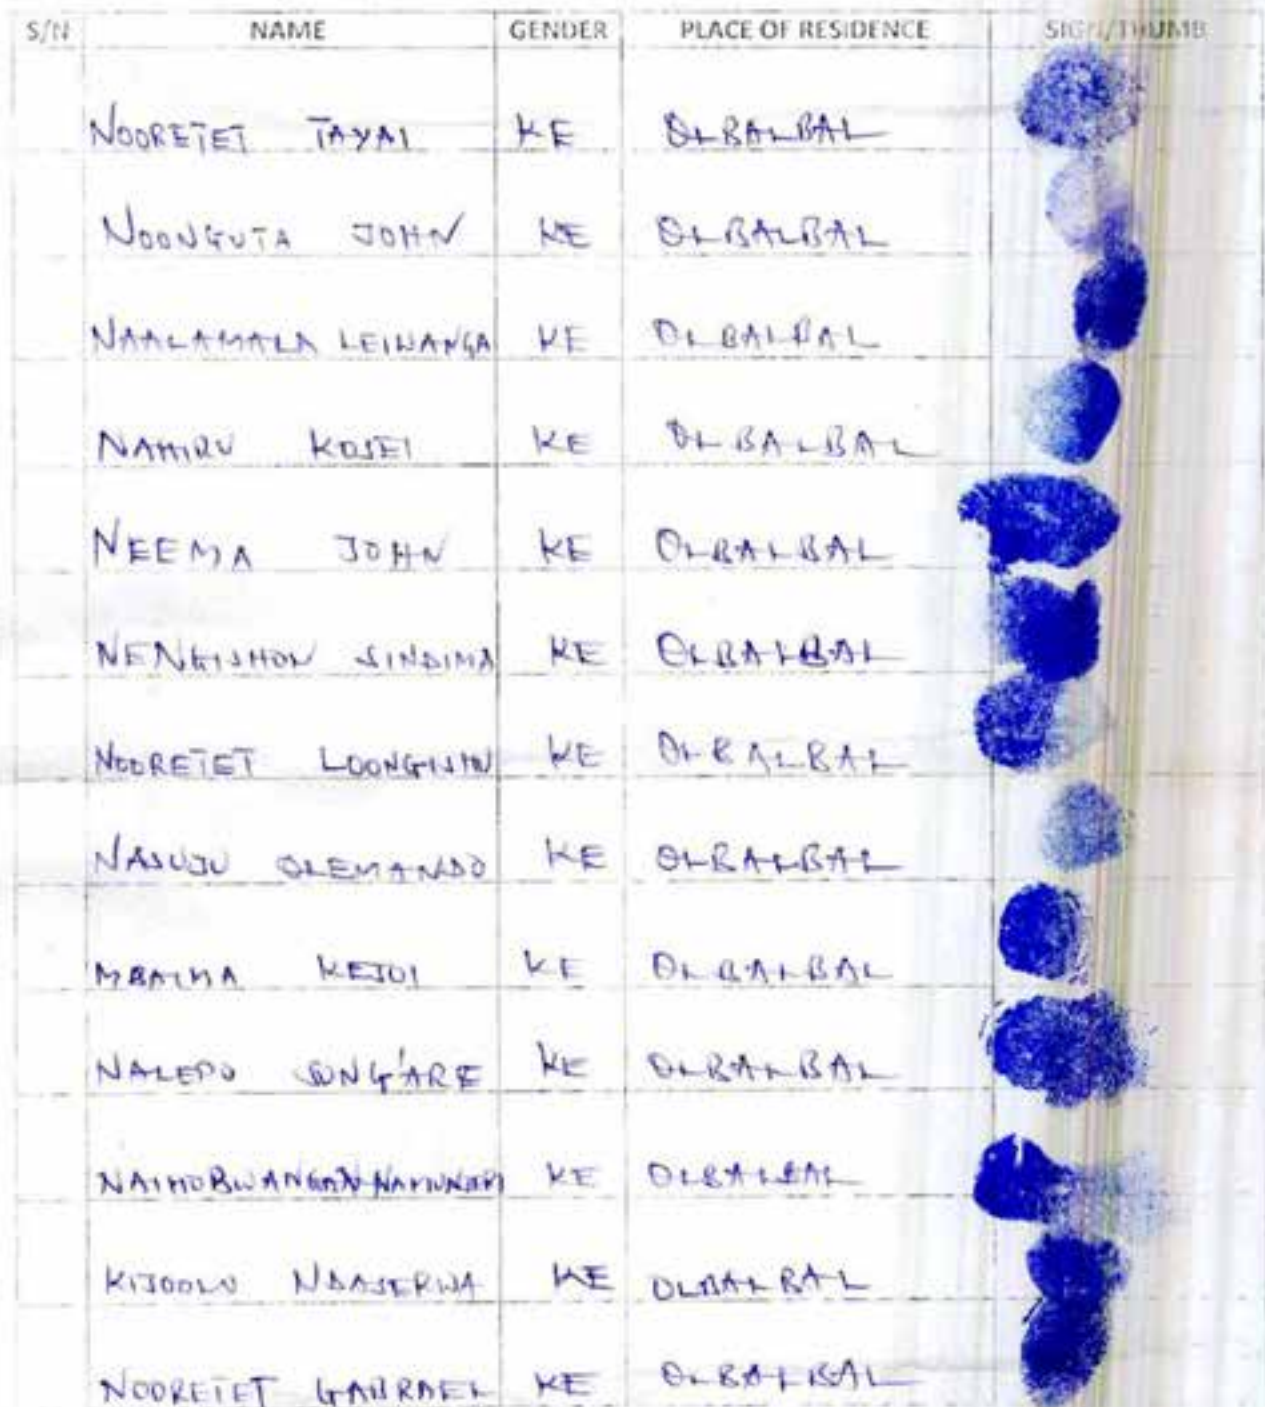 S/N NAME GENDER PLACE OF RESIDENCE SIGN/THUMB
NOORETET TAYAI KE OLBALBAL
NOONGUTA JOHN KE OLBALBAL
NAALAMALA LEIWANGA KE OLBALBAL
NAMIRU KOSEI KE OLBALBAL
NEEMA JOHN KE OLBALBAL
NENGISHON SINDIMA KE OLBALBAL
NOORETET LOONGISHU KE OLBALBAL
NASUJU OLEMANDO KE OLBALBAL
KEJOI KE OLBALBAL
NALEPO SONG'ARE KE OLBALBAL
KE OLBALBAL
KIJOOLU NDASERWA KE OLBALBAL
NOORETET GABRAEL KE OLBALBAL